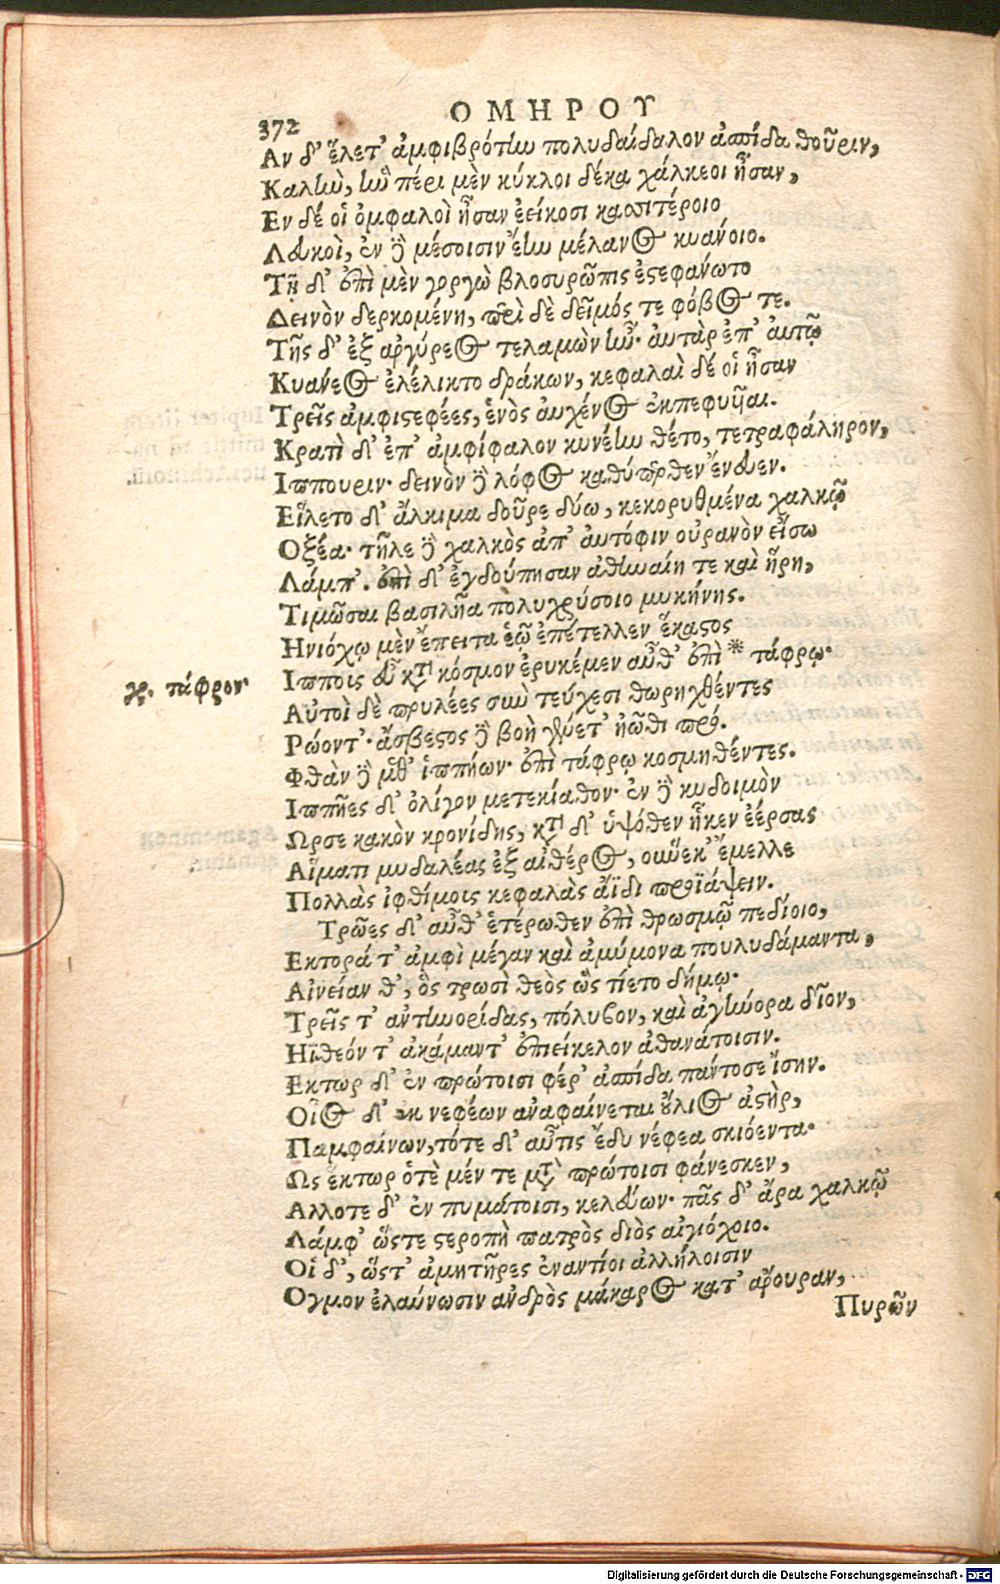 372
ΟΜΗΡΟΥ
Αν δ' ἕλετ' ἀμφιβρότην πολυδαίδαλον ἀσπίδα θοῦριν,
Καλὴν, ἣν πέρι μὲν κύκλοι δέκα χάλκεοι ἦσαν,
Εν δέ οἱ ὀμφαλοὶ ἦσαν ἐείκοσι κασσιτέροιο
Λευκοὶ, ἐν δὲ μέσοισιν ἔην μέλανος κυάνοιο.
Τῇ δ' ἐπὶ μὲν γοργὼ βλοσυρῶπις ἐστεφάνωτο
Δεινὸν δερκομένη, περὶ δὲ δεῖμός τε φόβος τε.
Τῆς δ' ἐξ ἀργύρεος τελαμὼν ἦν· αὐτὰρ ἐπ' αὐτῷ
Κυάνεος ἐλέλικτο δράκων, κεφαλαὶ δέ οἱ ἦσαν
Τρεῖς ἀμφιστεφέες, ἑνὸς αὐχένος ἐκπεφυῆαι.
Κρατὶ δ' ἐπ' ἀμφίφαλον κυνέην θέτο, τετραφάληρον,
Ιππουριν· δεινὸν δὲ λόφος καθύπερθεν ἔνευεν.
Εἵλετο δ' ἄλκιμα δοῦρε δύω, κεκορυθμένα χαλκῷ
Οξέα· τῆλε δὲ χαλκὸς ἀπ' αὐτόφιν οὐρανὸν εἴσω
Λάμπ'. ἐπὶ δ' ἐγδούπησαν ἀθηναίη τε καὶ ἥρη,
Τιμῶσαι βασιλῆα πολυχρύσοιο μυκήνης.
Ηνιόχῳ μὲν ἔπειτα ἑῷ ἐπέτελλεν ἕκαστος
Ιπποις εὖ κατὰ κόσμον ἐρυκέμεν αὖθ' ἐπὶ * τάφρῳ·
γρ. τάφρον·
Αὐτοὶ δὲ πρυλέες σὺν τεύχεσι θωρηχθέντες
Ρώοντ'· ἄσβεστος δὲ βοὴ γένετ' ἠῶθι πρό.
Φθὰν δὲ μέθ' ἱππήων· ἐπὶ τάφρῳ κοσμηθέντες.
Ιππῆες δ' ὀλίγον μετεκίαθον· ἐν δὲ κυδοιμὸν
Ωρσε κακὸν κρονίδης, κατὰ δ' ὑψόθεν ἧκεν ἐέρσας
Αἵματι μυδαλέας ἐξ αἰθέρος, οὕνεκ' ἔμελλε
Πολλὰς ἰφθίμοις κεφαλὰς ἄϊδι προϊάψειν.
Τρῶες δ' αὖθ' ἑτέρωθεν ἐπὶ θρωσμῷ πεδίοιο,
Εκτορά τ' ἀμφὶ μέγαν καὶ ἀμύμονα πουλυδάμαντα,
Αἰνείαν θ', ὃς τρωσὶ θεὸς ὣς τίετο δήμῳ·
Τρεῖς τ' ἀντηνορίδας, πόλυβον, καὶ ἀγήνορα δῖον,
Ηΐθεόν τ' ἀκάμαντ' ἐπιείκελον ἀθανάτοισιν.
Εκτωρ δ' ἐν πρώτοισι φέρ' ἀσπίδα πάντοσε ἴσην.
Οἷος δ' ἐκ νεφέων ἀναφαίνεται οὔλιος ἀστὴρ,
Παμφαίνων, τότε δ' αὖτις ἔδυ νέφεα σκιόεντα·
Ως ἕκτωρ ὁτὲ μέν τε μετὰ πρώτοισι φάνεσκεν,
Αλλοτε δ' ἐν πυμάτοισι, κελεύων· πᾶς δ' ἄρα χαλκῷ
Λάμφ' ὥστε στεροπὴ πατρὸς διὸς αἰγιόχοιο.
Οἱ δ', ὥστ' ἀμητῆρες ἐναντίοι ἀλλήλοισιν
Ογμον ἐλαύνωσιν ἀνδρὸς μάκαρος κατ' ἄρουραν,
Πυρῶν
Digitalisierung gefördert durch die Deutsche Forschungsgemeinschaft - DFG